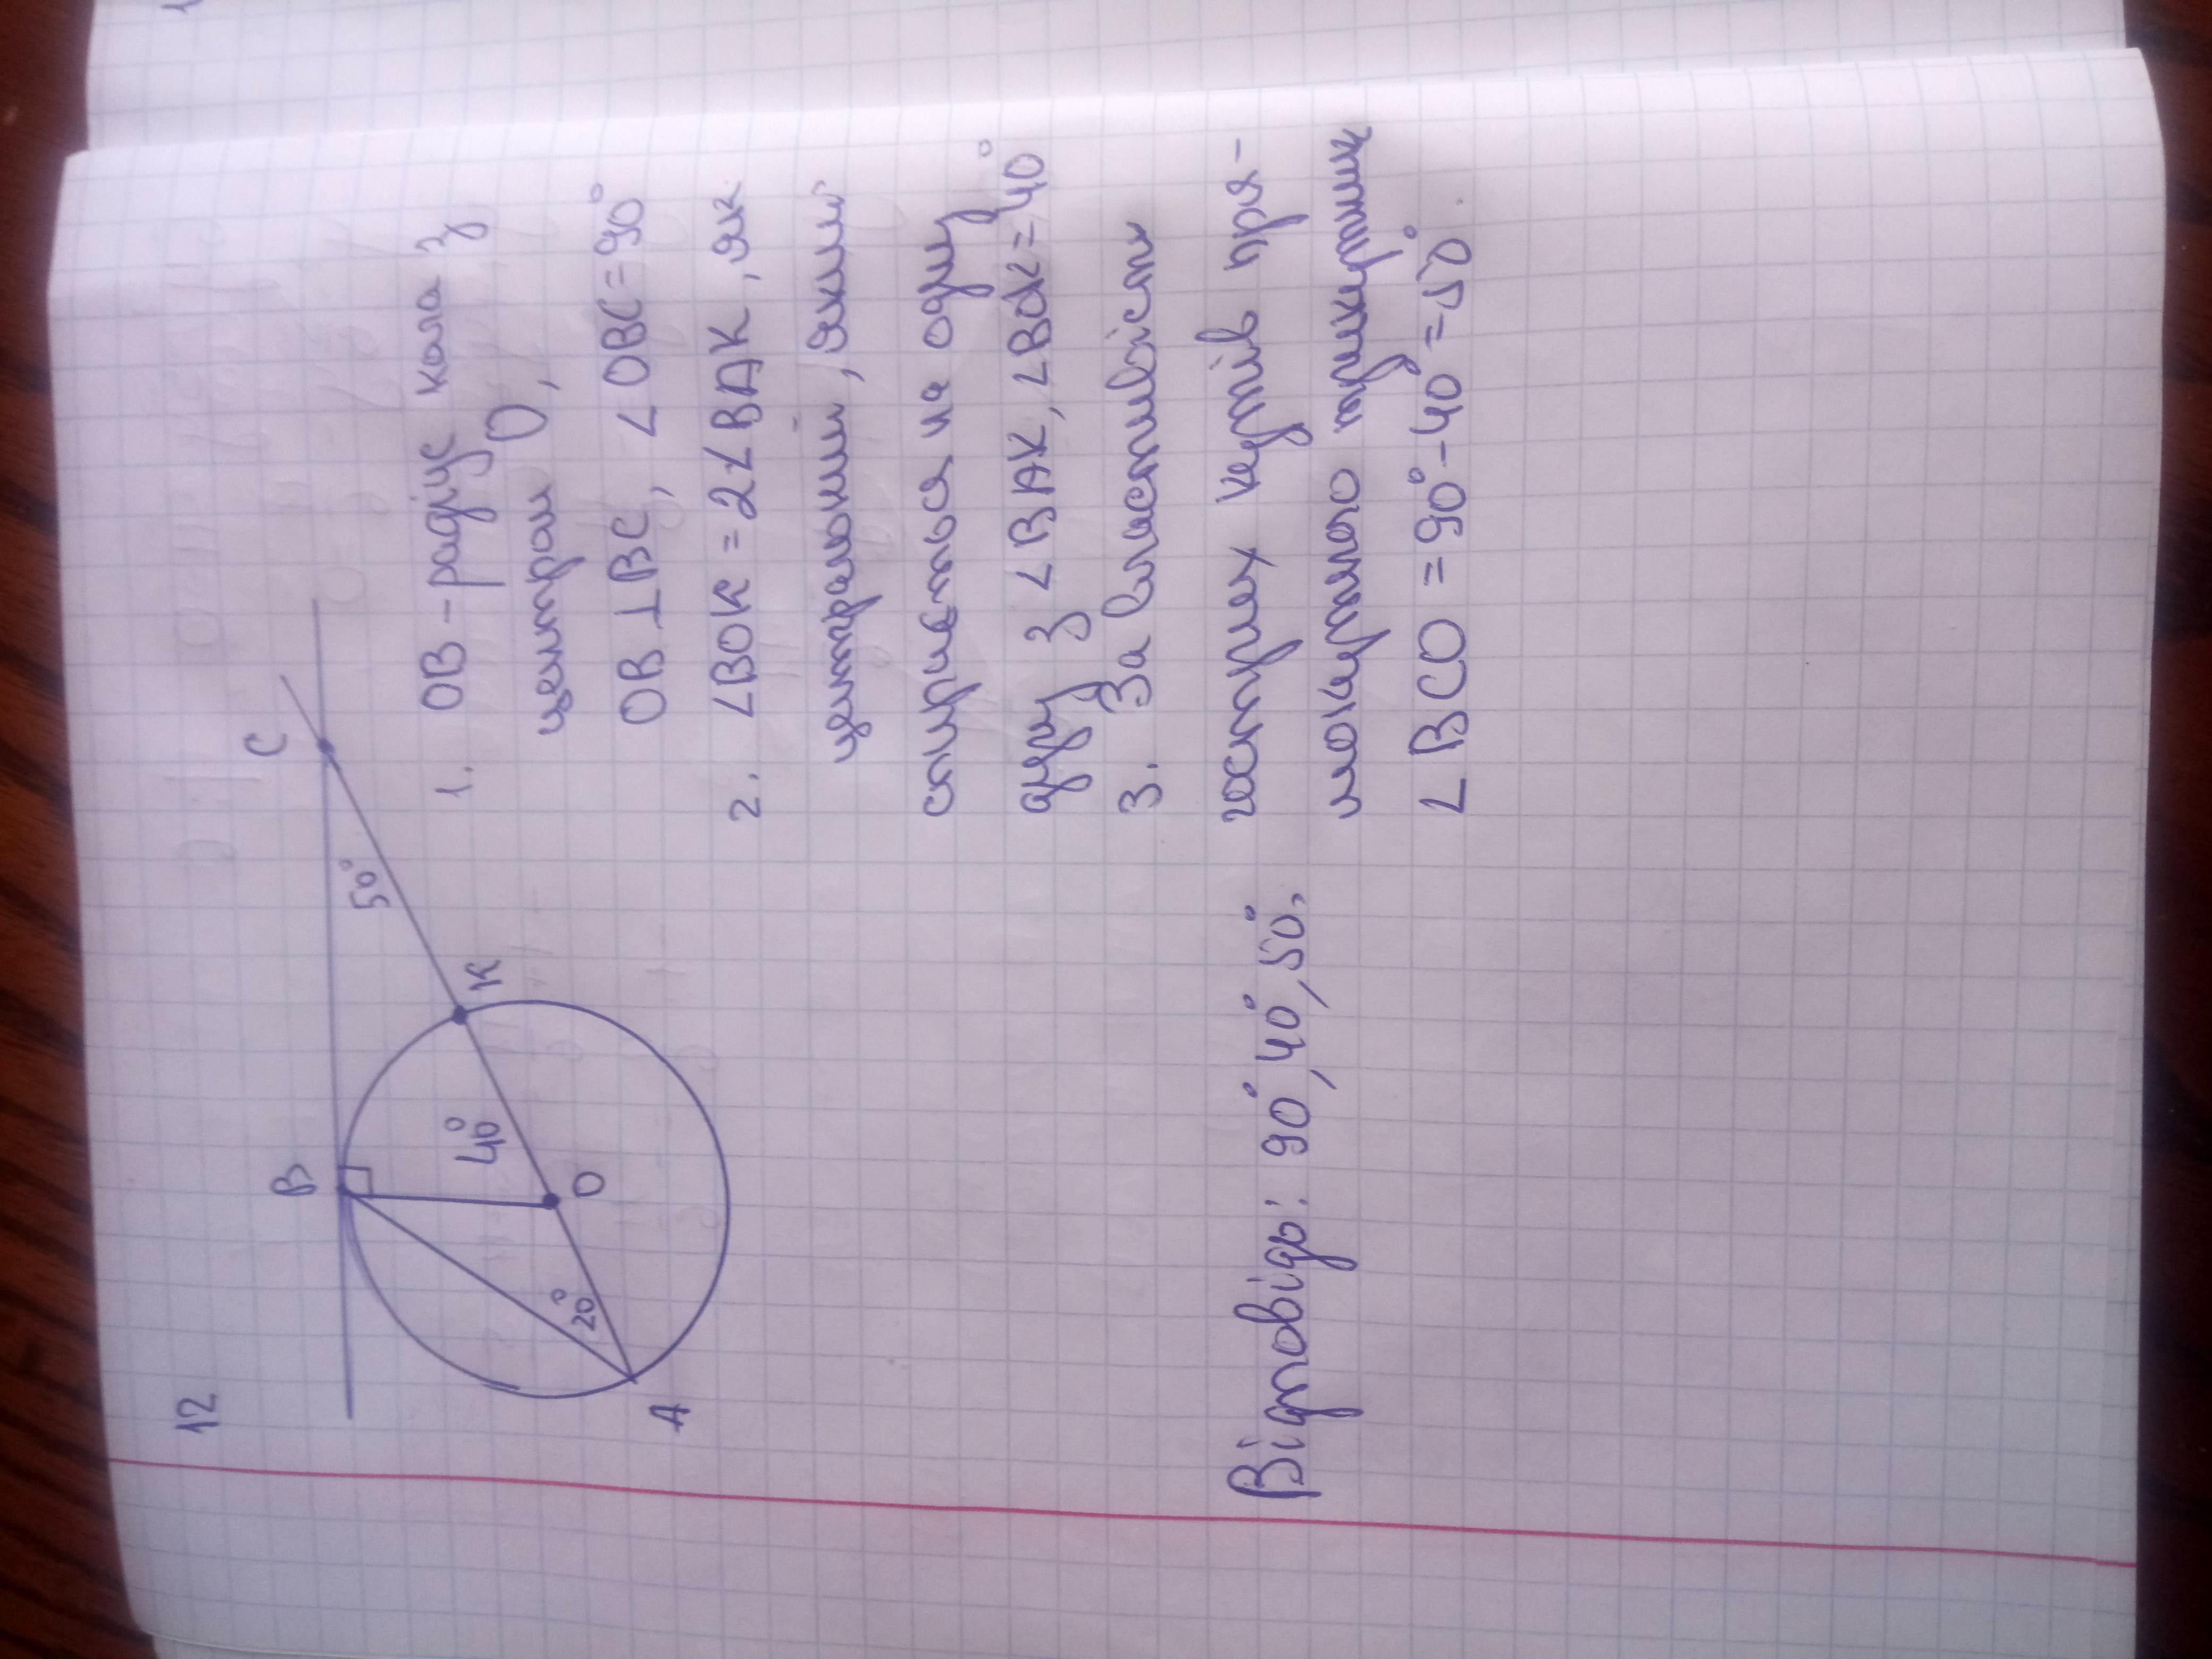 12
B
C
50°
40°
K
O
20°
A
1. OB - радіус кола з
центром O,
OB ⊥ BC, ∠OBC = 90°
2. ∠BOK = 2∠BAK, як
центральний, який
спирається на одну
дугу з ∠BAK, ∠BOK = 40°
3. За властивістю
гострих кутів пря-
мокутного трикутник
∠BCO = 90° - 40° = 50°.
Відповідь: 90°, 40°, 50°.